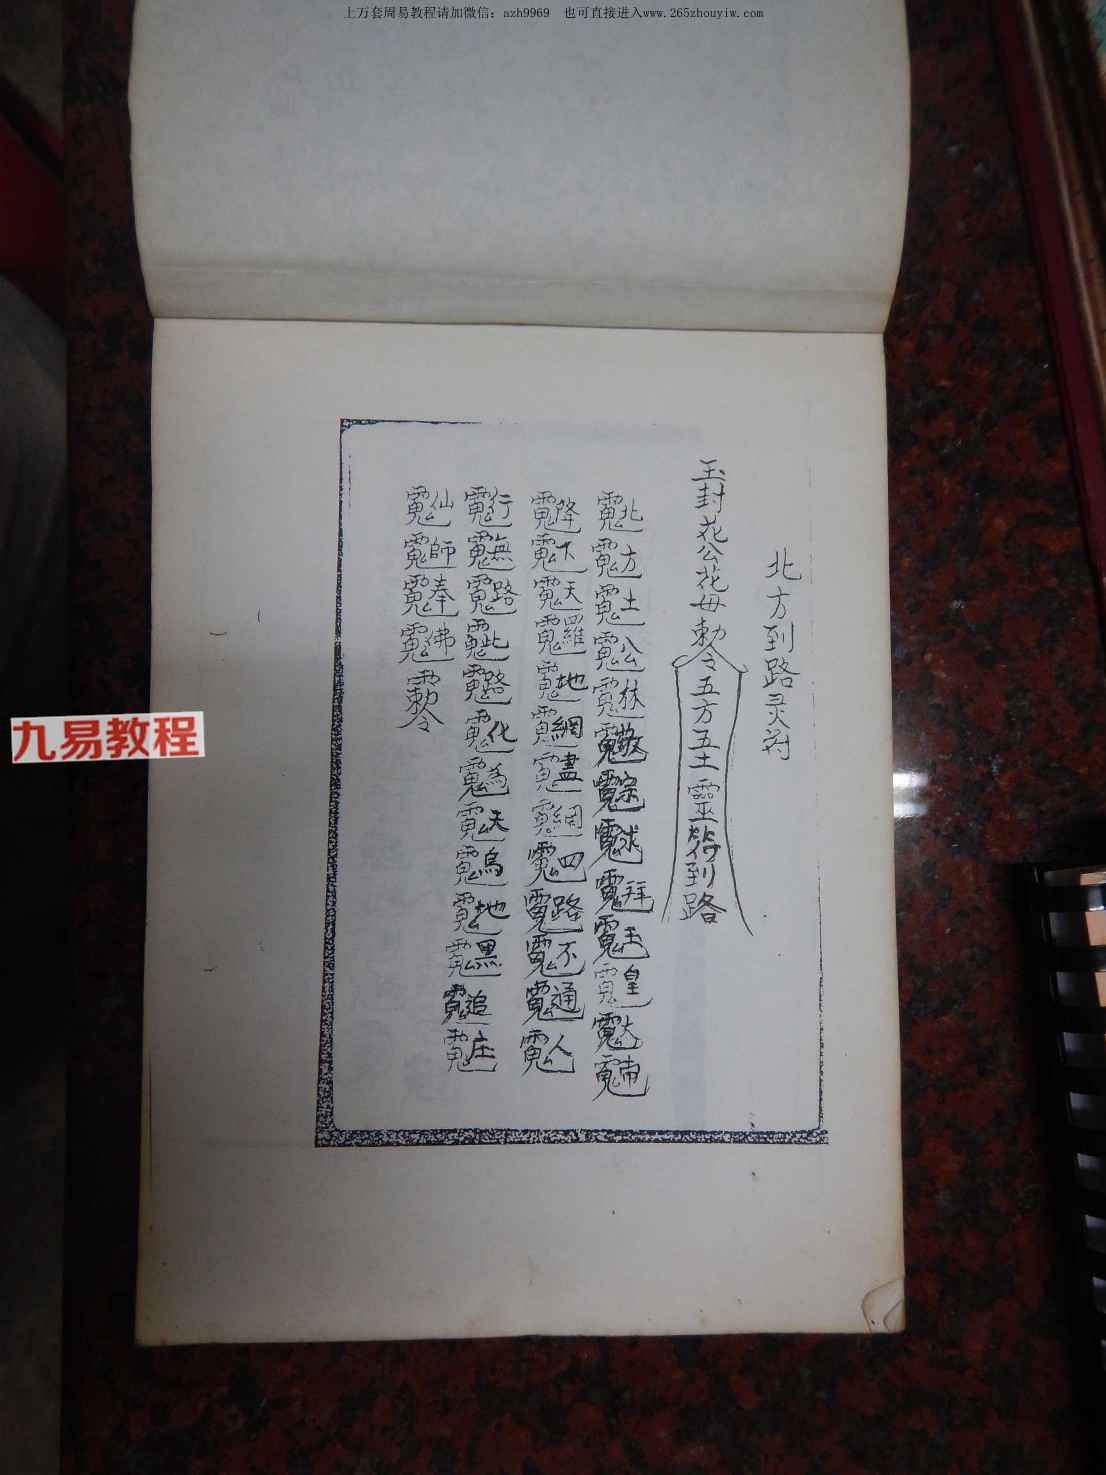 上万套周易教程请加微信：azh9969　也可直接进入www.265zhouyiw.com
北方到路灵符
玉封花公花毋勅令五方五土靈符到路
北方土公林敬宗求拜玉皇大帝
降下天羅地網盡綑四路不通人
行無路此路化為天烏地黑追庄
仙師奉佛勅令
九易教程